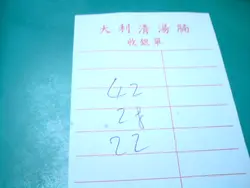 大利清湯腩
收銀單
42
28
22